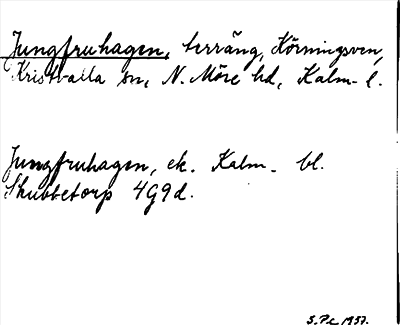 Jungfruhagen, terräng, Körningsven,
Kristvalla sn, N. Möre hd, Kalm. l.
Jungfruhagen, ek. Kalm. bl.
Skubbetorp 4G9d.
S.Pc 1957.